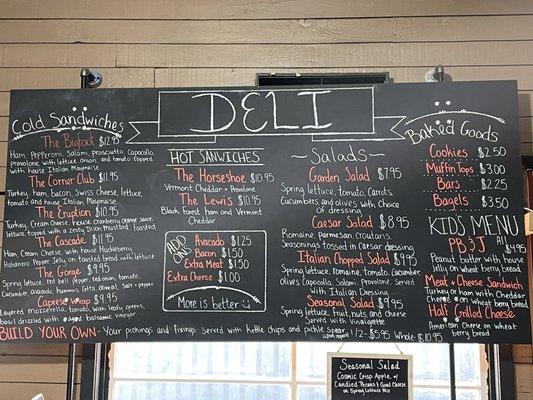 DELI
Cold Sandwiches
The Bigfoot $12.95
Ham, Pepperoni, Salami, prosciutto, Capocollo,
provolone with lettuce, onion, and tomato topped
with house Italian Mayonnaise
The Corner Club $11.95
Turkey, ham, bacon, Swiss cheese, lettuce,
tomato and house Italian Mayonnaise
The Eruption $10.95
Turkey, Cream Cheese, house cranberry orange sauce,
lettuce, topped with a zesty Dijon mustard, toasted
The Cascade $11.95
Ham, Cream Cheese, with house Huckleberry
Habanero Pepper Jelly on toasted bread w/ lettuce
The Gorge $9.95
Spring lettuce, red bell pepper, red onion, tomato,
Cucumber, avocado, hummus, feta, salt + pepper
Caprese Wrap $9.95
Layered mozzarella, tomato, with leafy greens,
basil drizzled with balsamic vinegar
HOT SANWICHES
The Horseshoe $10.95
Vermont Cheddar + Provolone
The Lewis $10.95
Black forest ham and Vermont
Cheddar
ADD ONS
Avocado $1.25
Bacon $1.50
Extra Meat $1.50
Extra Cheese $1.00
More is better
Salads
Garden Salad $7.95
Spring lettuce, tomato, Carrots,
Cucumbers, and olives with Choice
of dressing
Caesar Salad $8.95
Romaine, Parmesan, croutons,
Seasonings tossed in Caesar dressing
Italian Chopped Salad $9.95
Spring lettuce, Romaine, tomato, Cucumber
Olives, Capocollo, Salami, Provolone, Served
with Italian Dressing
Seasonal Salad $9.95
Spring lettuce, fruit, nuts, and cheese
Served with Vinaigrette
Baked Goods
Cookies $2.50
Muffin Tops $3.00
Bars $2.25
Bagels $3.50
KIDS MENU
PB&J All $4.95
Peanut butter with house
jelly on wheat berry bread
Meat + Cheese Sandwich
Turkey or ham with Cheddar
Cheese on wheat berry bread
Half Grilled Cheese
American Cheese on wheat
berry bread
BUILD YOUR OWN - Your pickings and fixings Served with kettle chips and pickle Spear 1/2-$5.95 Whole-$10.95
Seasonal Salad
Cosmic Crisp Apple w/
Candied Pecans & Goat Cheese
on Spring Lettuce Mix